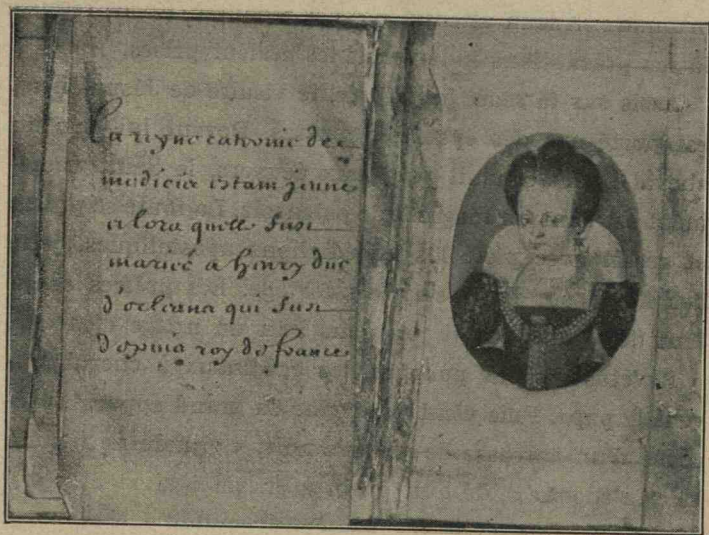 La reyne caterine de
medicis estant jeune
a lors quelle fust
mariée a henry duc
d'orleans qui fust
depuis roy de france